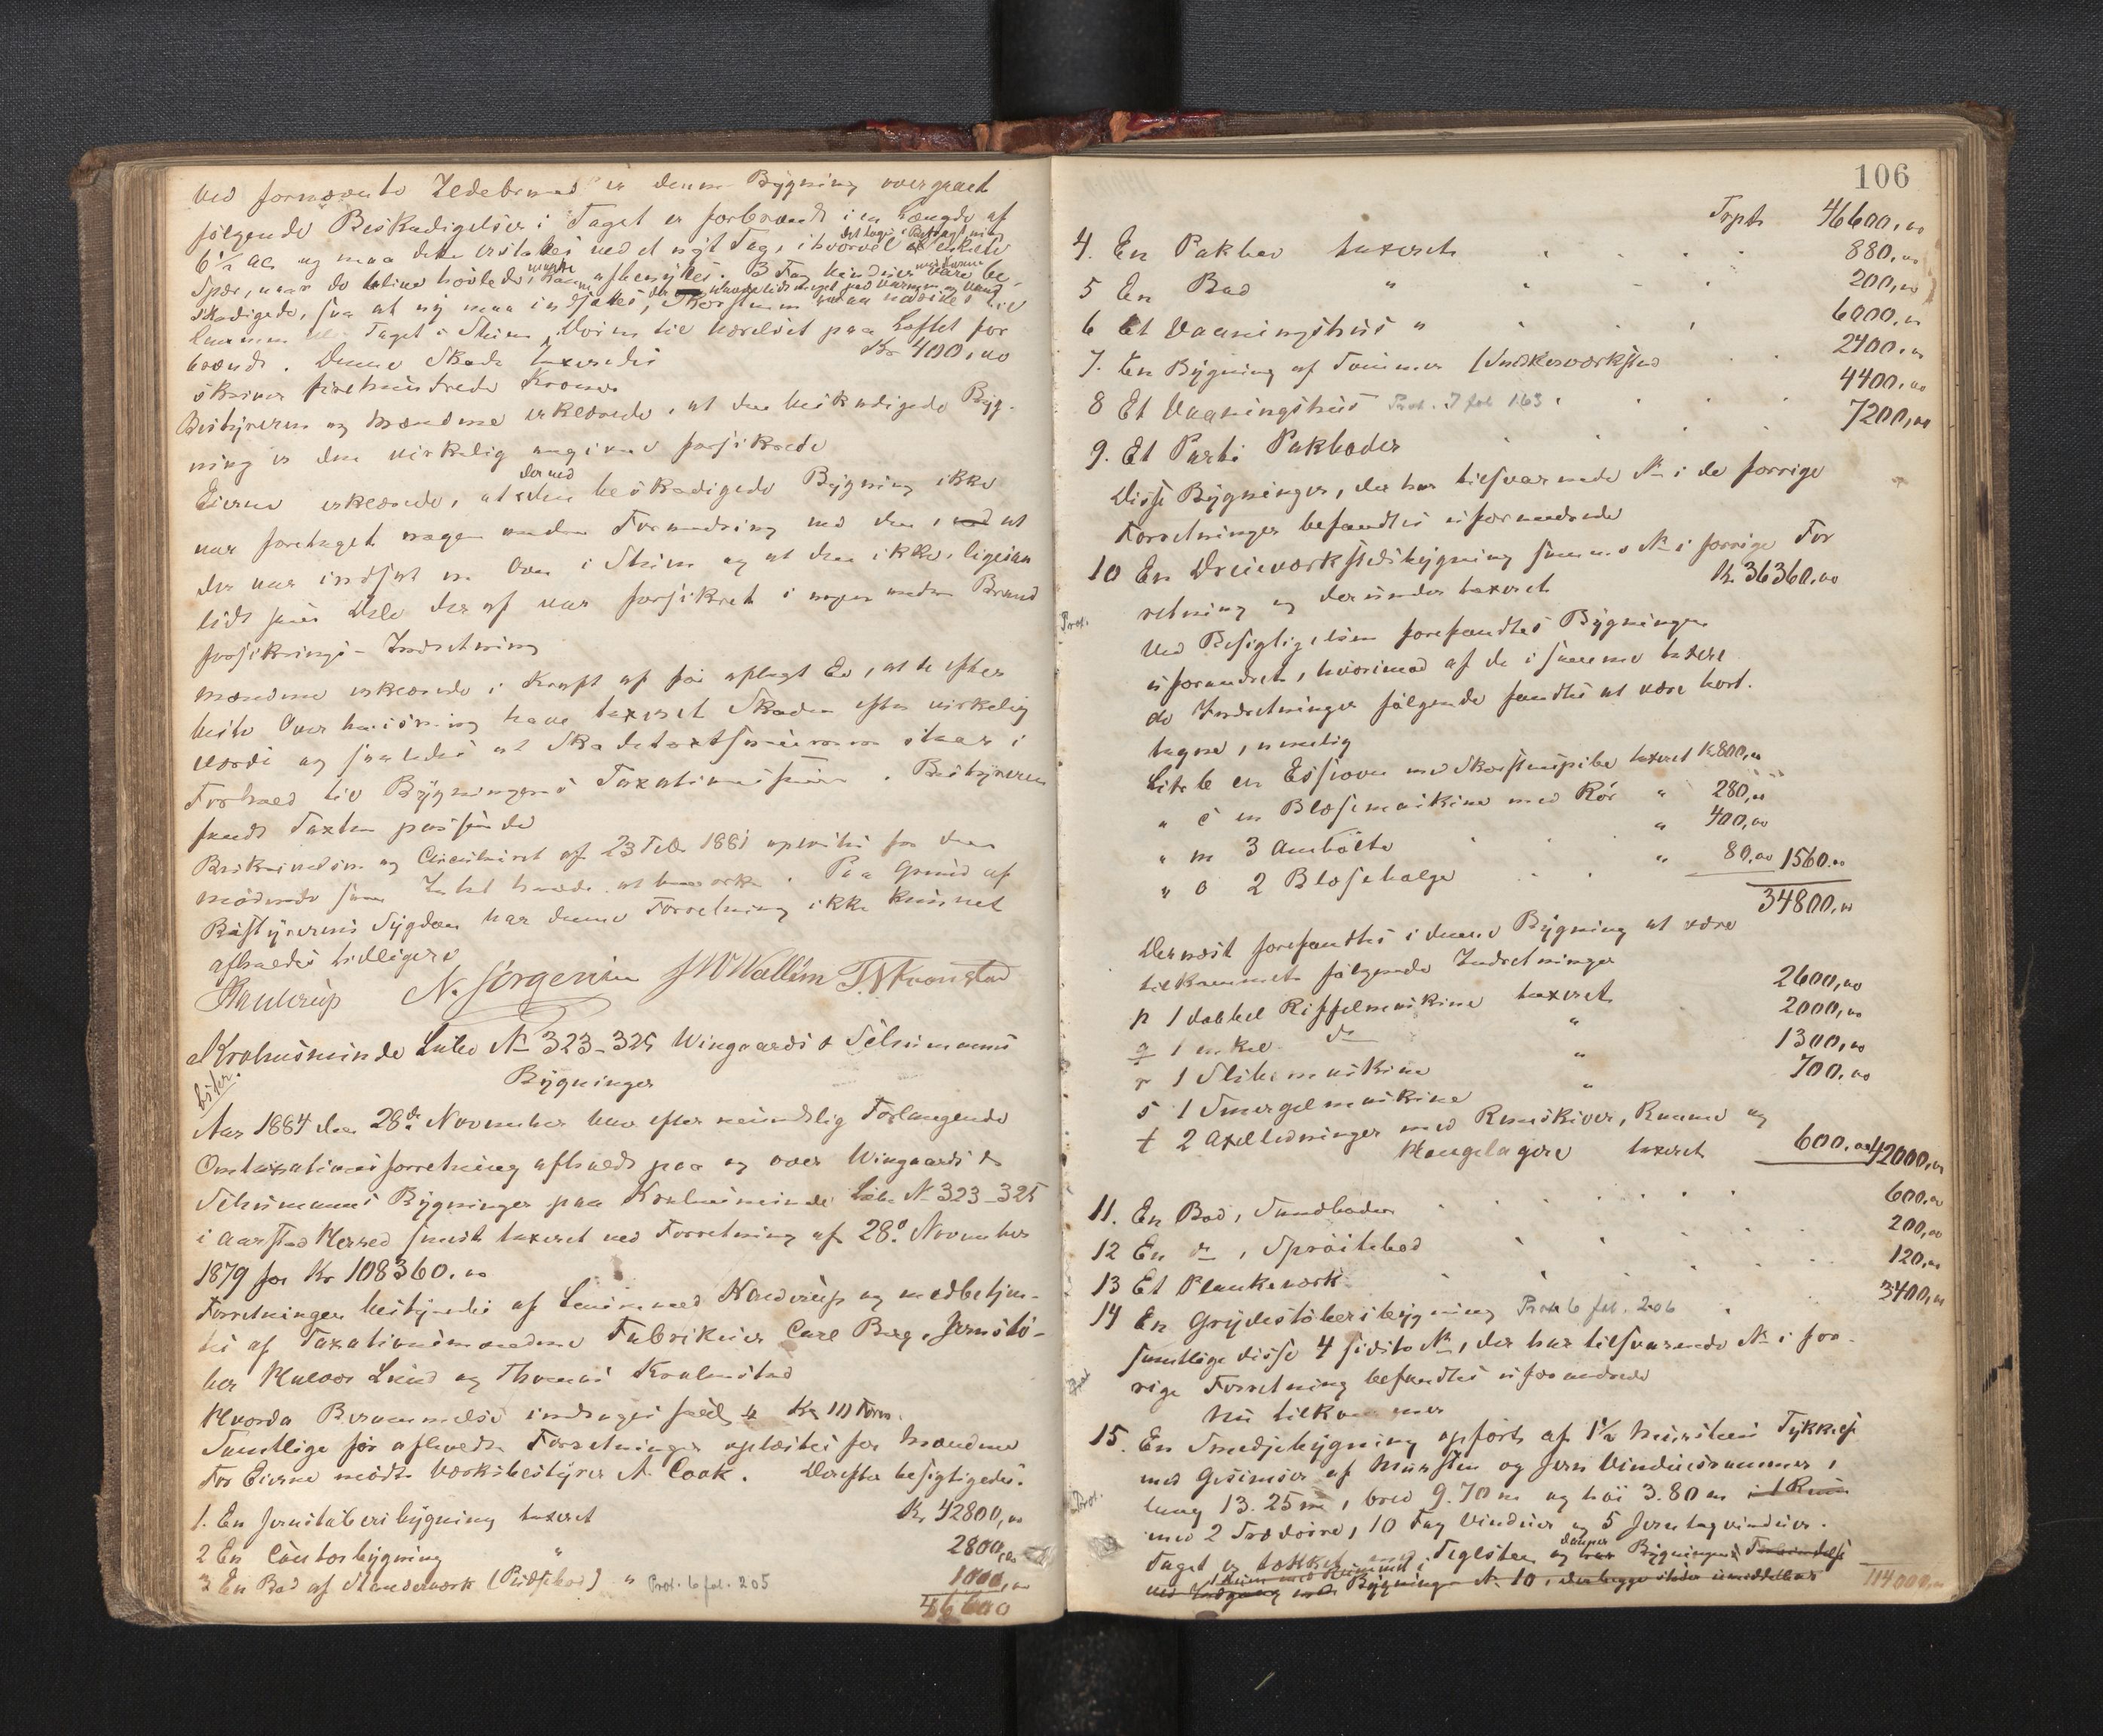 Ved fornævnte Ildebrand er denne Bygning overgaaet
følgende Beskadigelser: Taget er forbrændt i en Længde af
6½ al. og maa dette erstattes ved et nyt Tag, i hvorvel enkelte
Spær, naar de blive høvlede, kan afbenyttes. 3 Fag Vinduer ere be-
skadigede, saa at ny maa indsættes, Skorstenen
Taget i Stuen, Døren til Værelset paa Loftet for
brændt. Denne Skade taxeredes Kr 400,00
skriver firehundrede Kroner
Bestyreren og Mændene erklærede, at den beskadigede Byg-
ning er den virkelig angivne forsikrede
derved
Eierne erklærede, at den beskadigede Bygning ikke
var foretaget nogen anden Forandring ved den, end at
der var indsat en Ovn i Stuen og at den ikke, ligesaa
lidt som Dele deraf var forsikret i nogen anden Brand
forsikrings-Indretning
Mændene erklærede i Kraft af før aflagt Ed, at de efter
bedste Overbeviisning have taxeret Skaden efter virkelig
Værdi og saaledes at Skadetaxtsummen staar i
Forhold til Bygningens Taxationssum. Bestyreren
fandt Taxten passende
Beskrivelsen og Circulairet af 23 Febr 1881 oplæstes for den
mødende som Intet havde at bemærke. Paa Grund af
Bestyrerens Sygdom har denne Forretning ikke kunnet
afholdes tidligere
Kanderup N. Jørgensen J W Wallem T. Kronstad
Krohnsminde Litr. No 323-325 Wingaards & Schumanns
Bygninger
Aar 1884 den 28de November blev efter mundtlig Forlangende
Omtaxationsforretning afholdt paa og over Wingaards &
Schumanns Bygninger paa Krohnsminde Litr. No 323-325
i Aarstad Herred sidst taxeret ved Forretning af 28de November
1879 for Kr 108360.00
Forretningen bestyredes af Lensmand Kanderup og medbetjen-
tes af Taxationsmændene Fabrikeier Carl Berg, Jernstø-
ber Halvor Lund og Thomas Krohnstad
Hvorda Berammelse indtages
Samtlige før afholdte Forretninger oplæstes for Mændene
For Eierne mødte Værksbestyrer A. Cook. Derefter besigtigedes:
1. En Jernstøberibygning taxeret Kr 42800,00
2 En Contorbygning " 2800,00
3 En Bod af Standerværk (Pudsebod) " Prot. 6 fol. 205 1000,00
46600
106
Trpt 46600,00
4. En Pakbod taxeret 880,00
5 En Bod " 200,00
6 Et Vaaningshuus " 6000,00
7. En Bygning af Tømmer (Snedkerværksted 2400,00
8 Et Vaaningshuus Prot. 7 fol 163 4400,00
9. Et Parti Pakboder 7200,00
Disse Bygninger, der har tilsvarende No i de forrige
Forretninger befandtes uforandrede
10 En Dreieværkstedsbygning samme No i forrige For
retning og derunder taxeret Kr. 36360,00
Prot.
Ved Besigtigelsen forefandtes Bygningen
uforandret, hvorimod af de i samme taxere
de Indretninger følgende fandtes at være bort.
tagne, nemlig
Litr b en Essiovn med Skorstenspibe taxeret Kr 800,00
" c en Blæsemaskine med Rør " 280,00
" m 3 Ambolte " 400,00
" o 2 Blæsebælge " 80,00 1560.00
34800,00
Dernæst forefandtes i denne Bygning at være
tilkommet følgende Indretninger
p 1 dobbel Riffelmaskine taxeret 2600,00
q 1 enkel do " 2000,00
r 1 Slibemaskine " 1300,00
s 1 Smergelmaskine " 700,00
t 2 Axelledninger med Remskiver, Remme og
Hængelagere taxeret 600.00 42000,00
11. En Bod, Sandboden 600,00
12 En do, Sprøitebod 200,00
13 Et Plankeværk 120,00
14 En Grydestøberibygning Prot 6 fol. 206 3400,00
Samtlige disse 4 sidste No, der har tilsvarende No i for-
rige Forretning befandtes uforandrede
Nu tilkommer
15. En Smedjebygning opført af 1½ Mursteens Tykkelse
med Gesimser af Mursten og Jern Vinduesrammer,
Prot.
lang 13.25 m, bred 9.70 m og høi 3.80 m i 1 Rum
med 2 Trædøre, 10 Fag Vinduer og 5 Jerntagvinduer.
Taget er tækket med Teglsten og danner Bygningens Forbindelse
ved Indgang med Bygningen No 10, der begge støder umiddelbar 114000,00